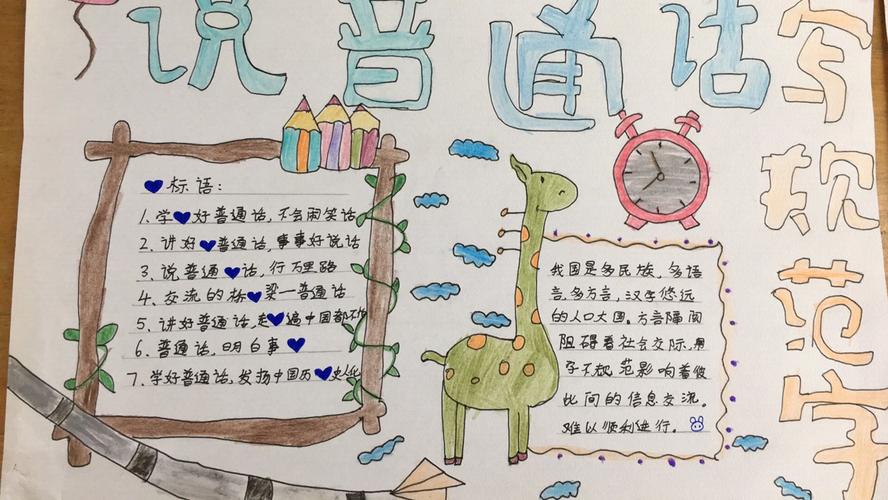 说普通话
写规范字
标语:
1、学好普通话,不会闹笑话
2、讲好普通话,事事好说话
3、说普通话,行万里路
4、交流的标梁一普通话
5、讲好普通话,走遍中国都不怕
6、普通话,明白事
7、学好普通话,发扬中国历史文化
我国是多民族,多语
言,多方言,汉字悠远
的人口大国。方言隔阂
阻碍着社会交际,用
字不规范影响着彼
比间的信息交流。
难以顺利进行。